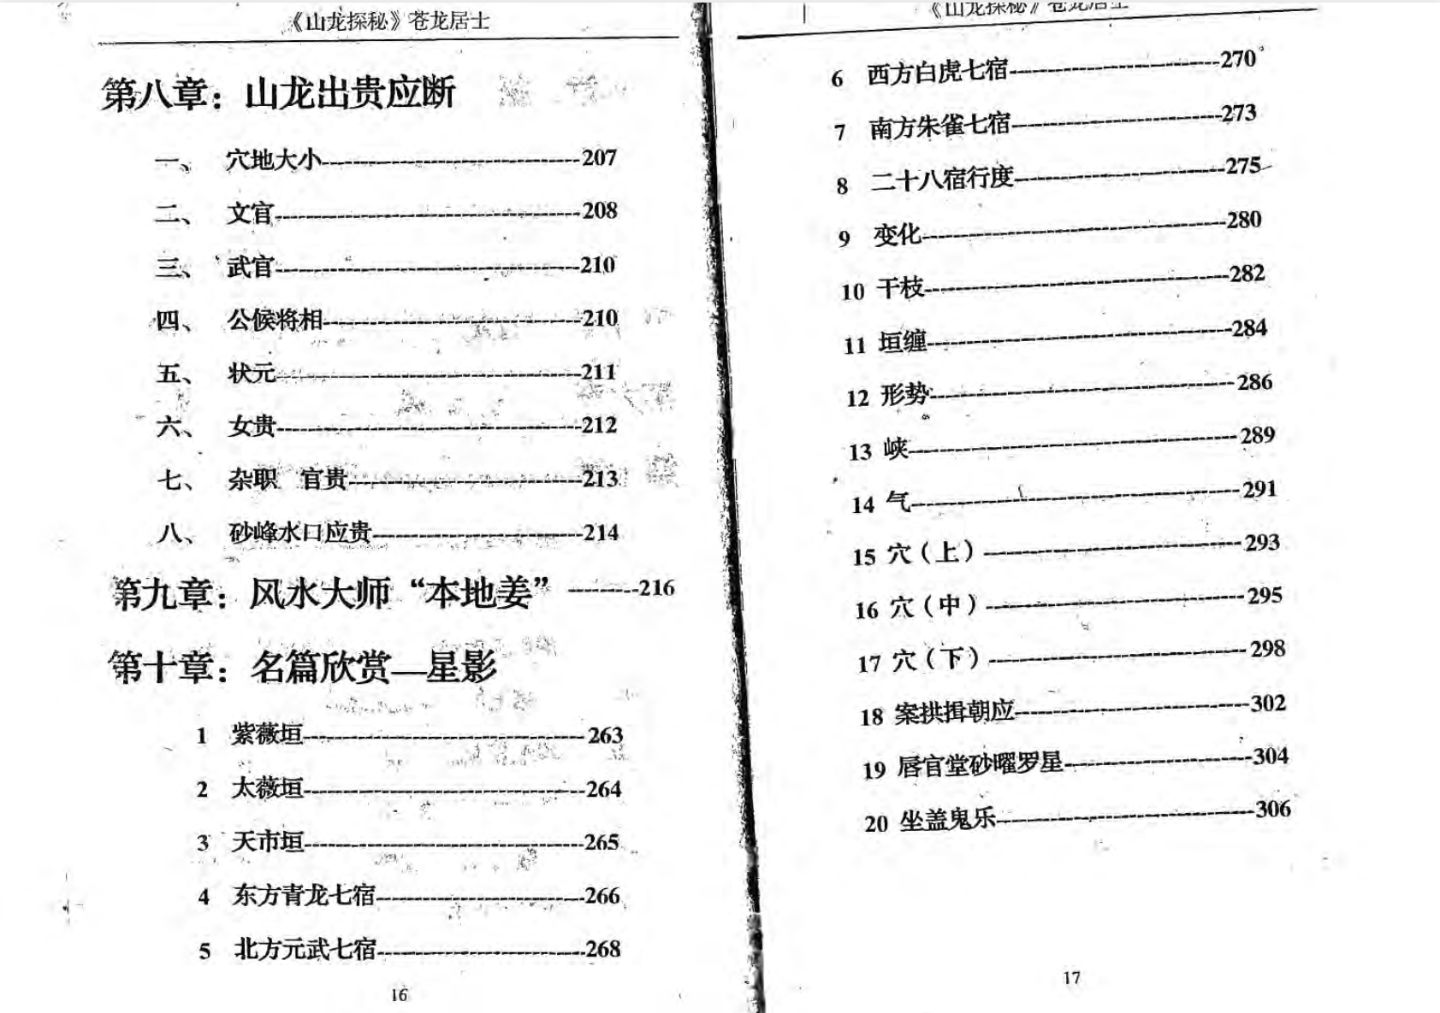 《山龙探秘》苍龙居士
第八章：山龙出贵应断
一、 穴地大小---207
二、 文官---208
三、 武官---210
四、 公候将相---210
五、 状元---211
六、 女贵---212
七、 杂职 官贵---213
八、 砂峰水口应贵---214
第九章：风水大师“本地姜”---216
第十章：名篇欣赏—星影
1 紫薇垣---263
2 太薇垣---264
3 天市垣---265
4 东方青龙七宿---266
5 北方元武七宿---268
16
《山龙探秘》苍龙居士
6 西方白虎七宿---270
7 南方朱雀七宿---273
8 二十八宿行度---275
9 变化---280
10 干枝---282
11 垣缠---284
12 形势---286
13 峡---289
14 气---291
15 穴（上）---293
16 穴（中）---295
17 穴（下）---298
18 案拱揖朝应---302
19 唇官堂砂曜罗星---304
20 坐盖鬼乐---306
17